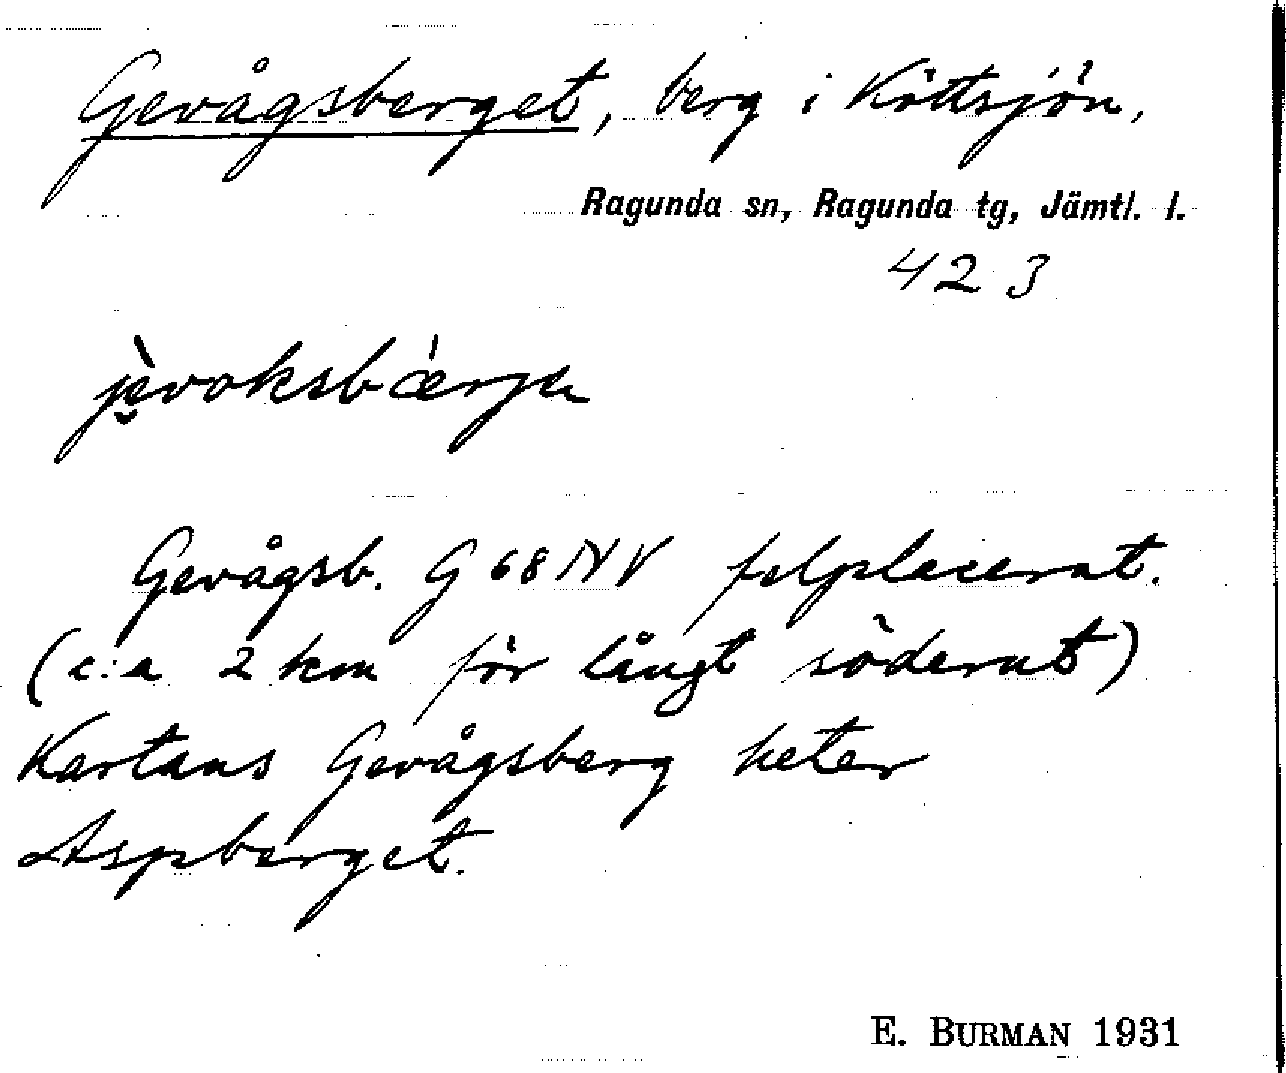 Gevågsberget, berg i Köttsjön,
Ragunda sn, Ragunda tg, Jämtl. l.
423
jèvoksbǽrjɐ
Gevågsb. G 68 NV felplacerat.
(c:a 2 km för långt söderut)
Kartans Gevågsberg heter
Aspberget.
E. BURMAN 1931